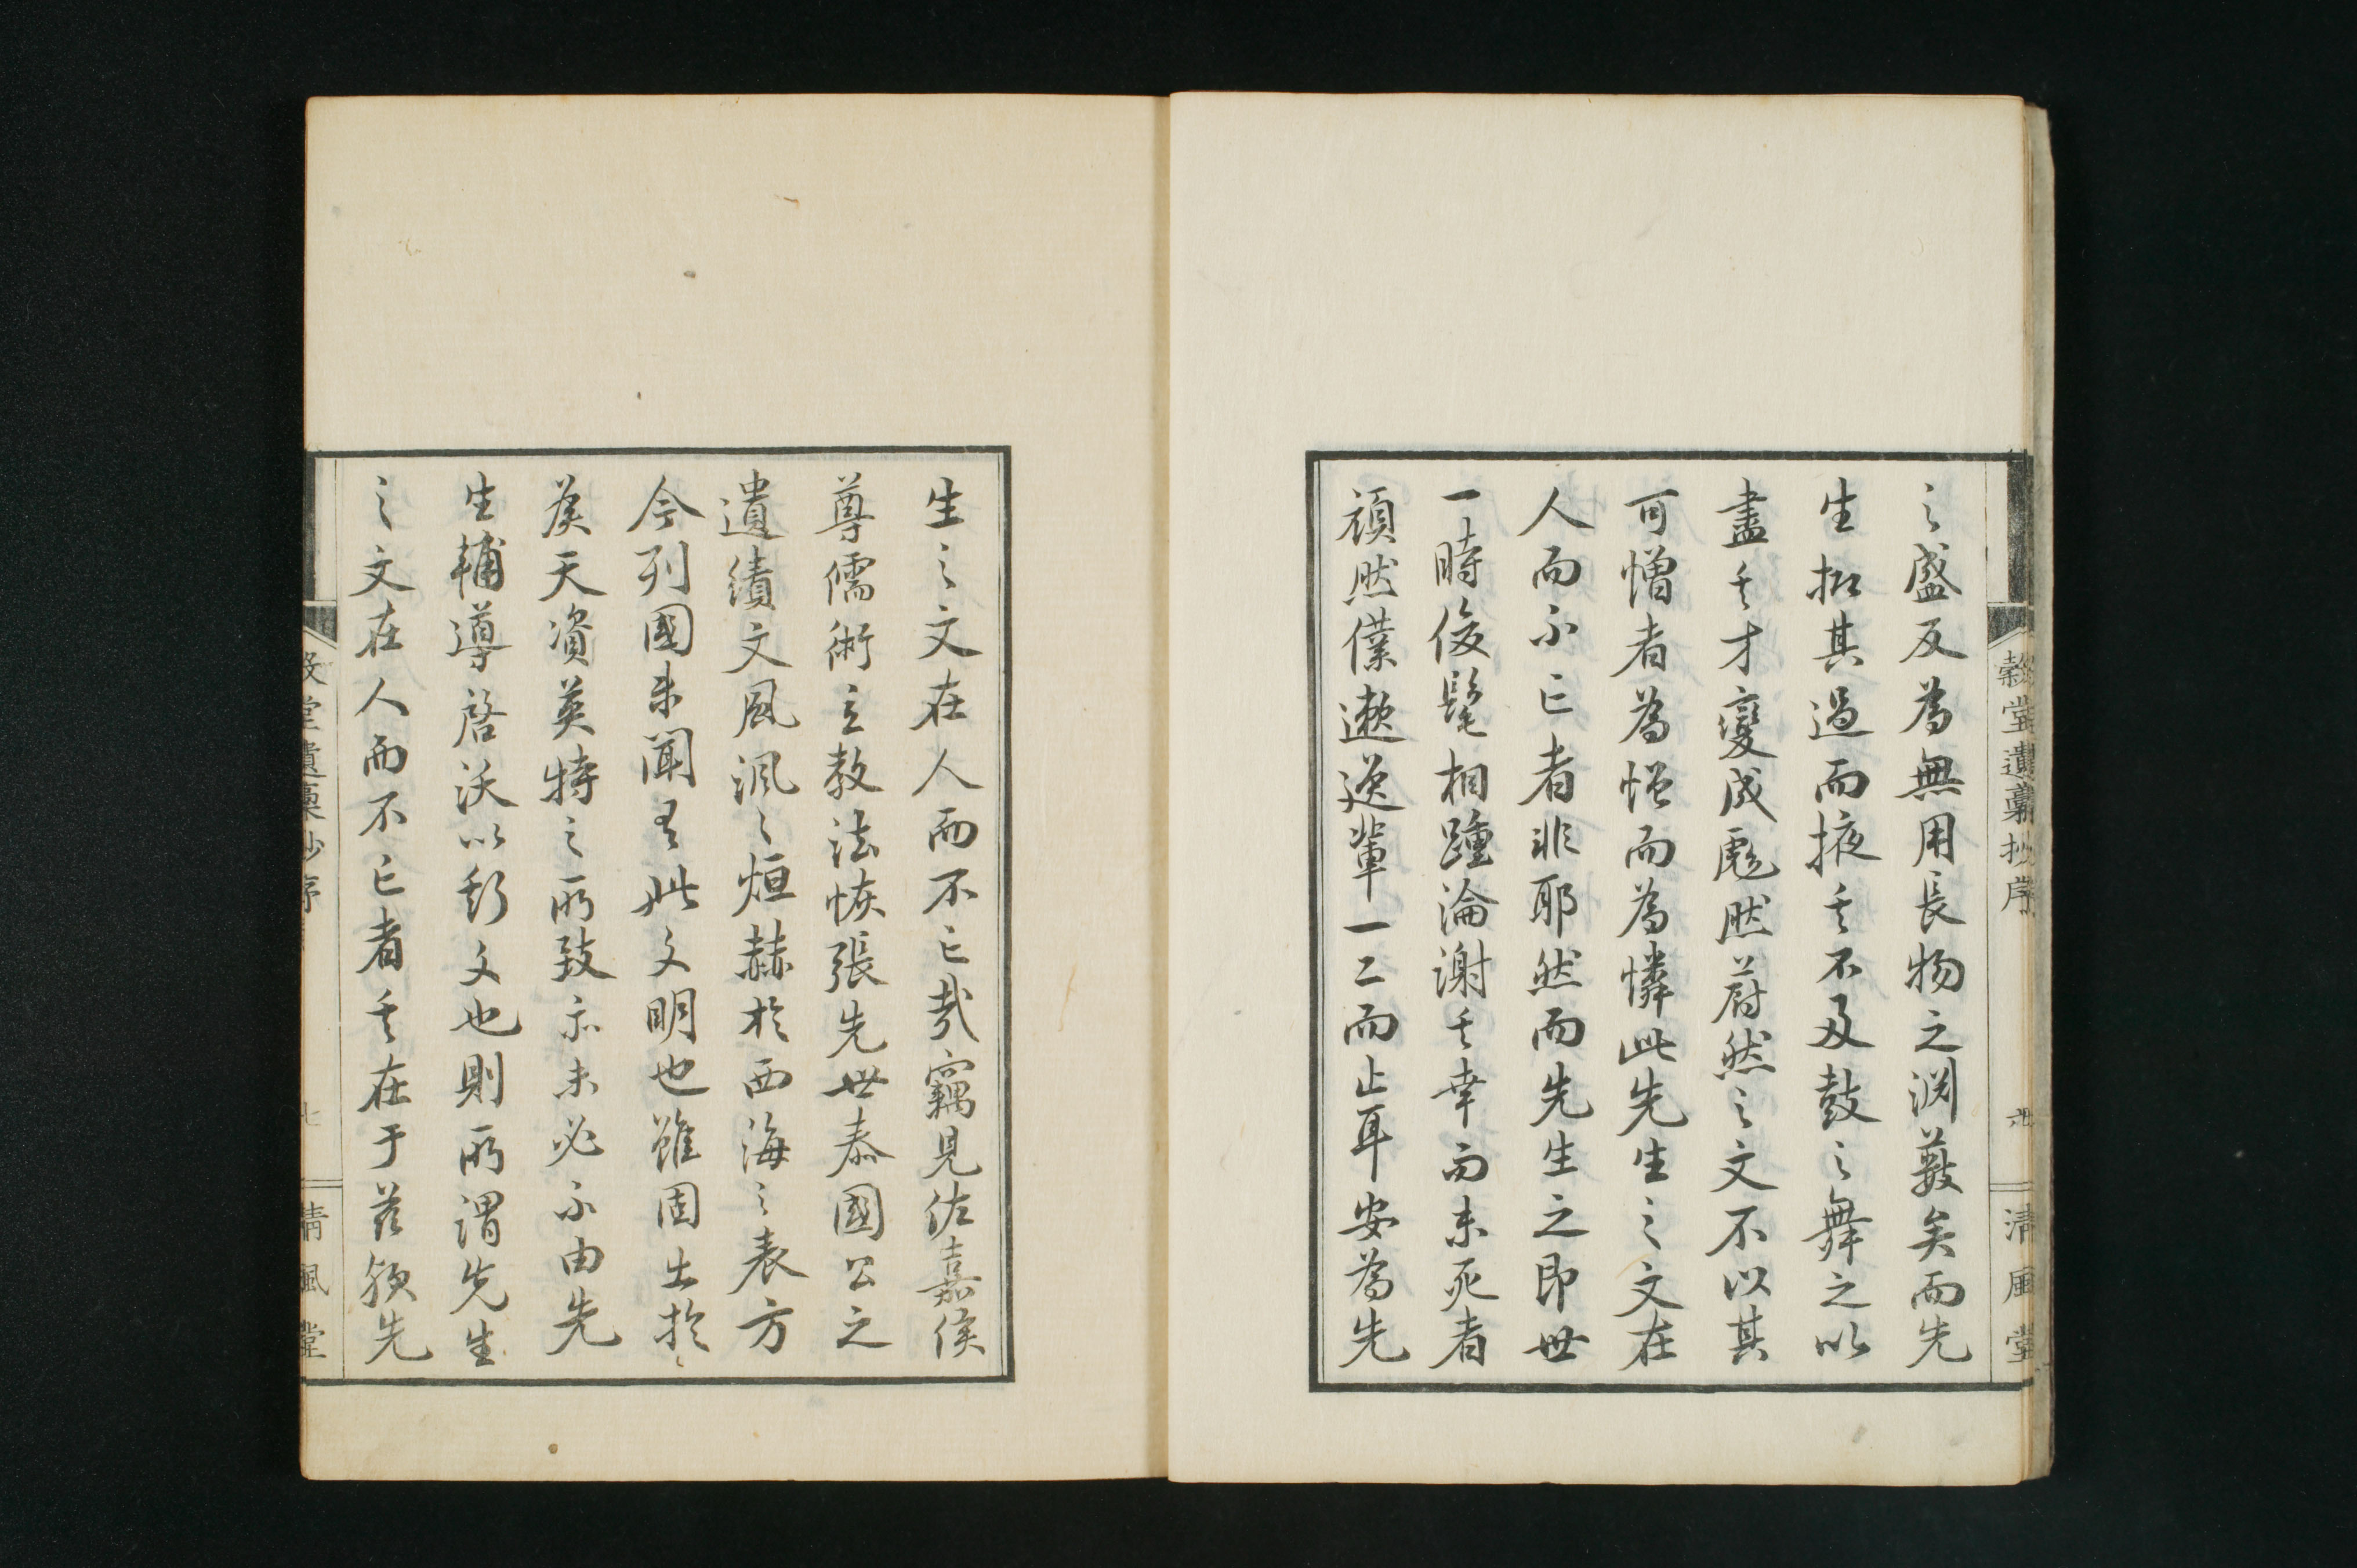 之盛反為無用長物之淵藪矣而先
生拟其過而掖其不及鼓之舞之以
盡其才變成彪然蔚然之文不以其
可憎者為憎而為憐此先生之文在
人而不亡者非耶然而先生之即世
一時俊髦相踵淪謝其幸而未死者
頑然僕遬送輩一二而止耳安為先
生之文在人而不亡哉竊見佐嘉侯
尊儒術立教法恢張先世泰國公之
遺績文風渢々烜赫於西海之表方
今列國未聞有此文明也雖固出於
侯天資英特之所致亦未必不由先
生輔導啓沃以彰文也則所謂先生
之文在人而不亡者其在于茲須先
穀堂遺藁抄序
清風堂
穀堂遺藁抄序
七
清風堂